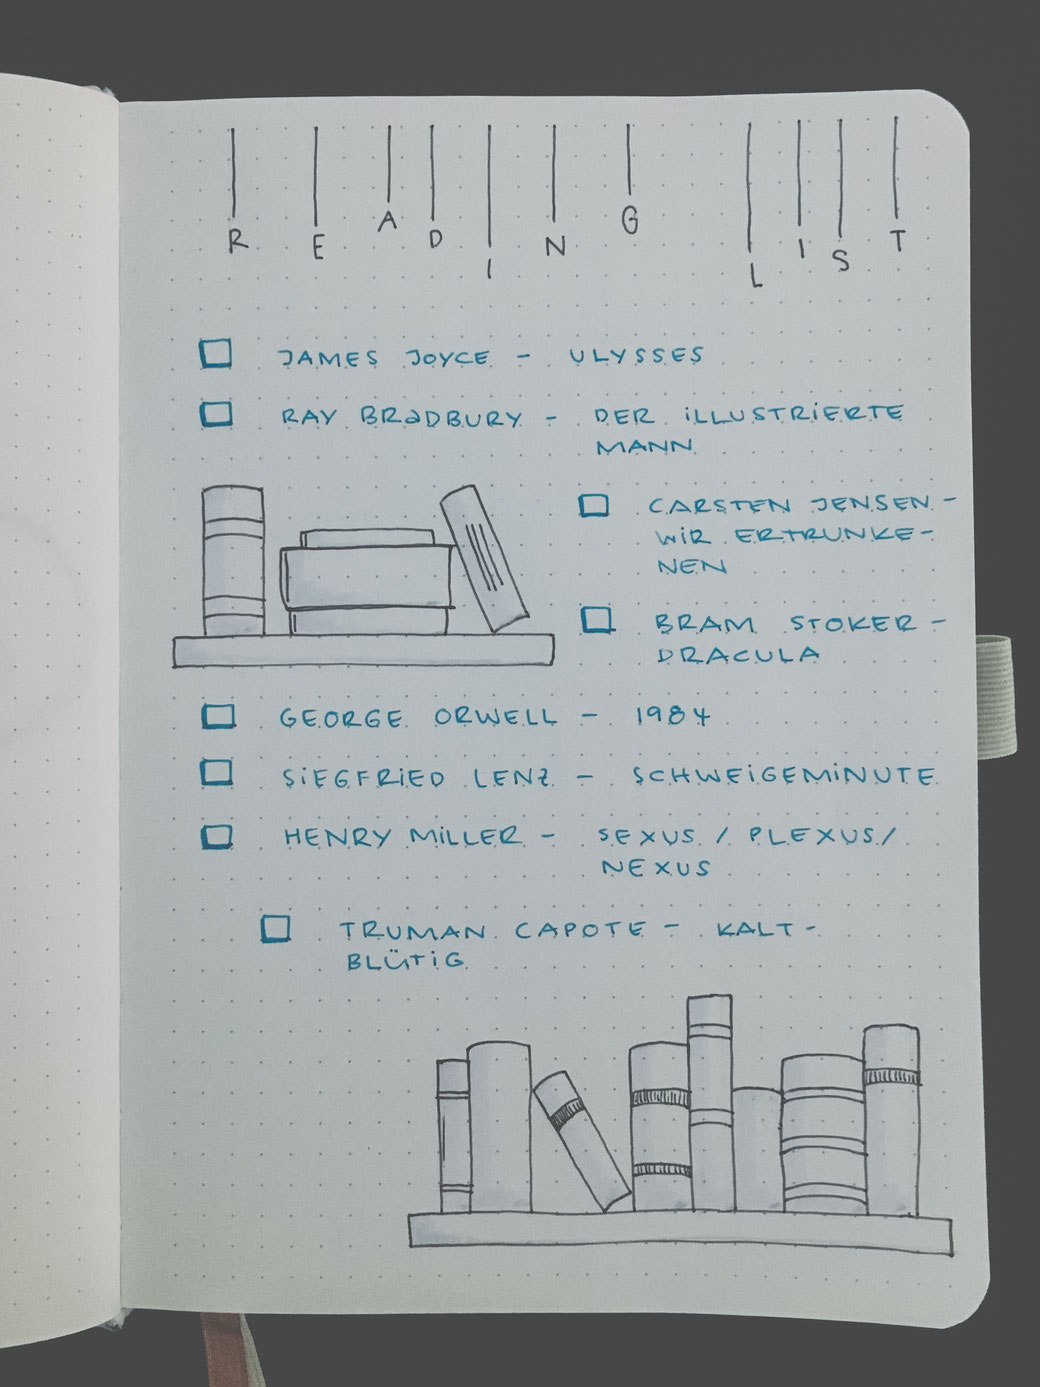 READING LIST
JAMES JOYCE - ULYSSES
RAY BRADBURY - DER ILLUSTRIERTE
MANN
CARSTEN JENSEN -
WIR ERTRUNKE-
NEN
BRAM STOKER -
DRACULA
GEORGE ORWELL - 1984
SIEGFRIED LENZ - SCHWEIGEMINUTE
HENRY MILLER - SEXUS / PLEXUS /
NEXUS
TRUMAN CAPOTE - KALT-
BLÜTIG